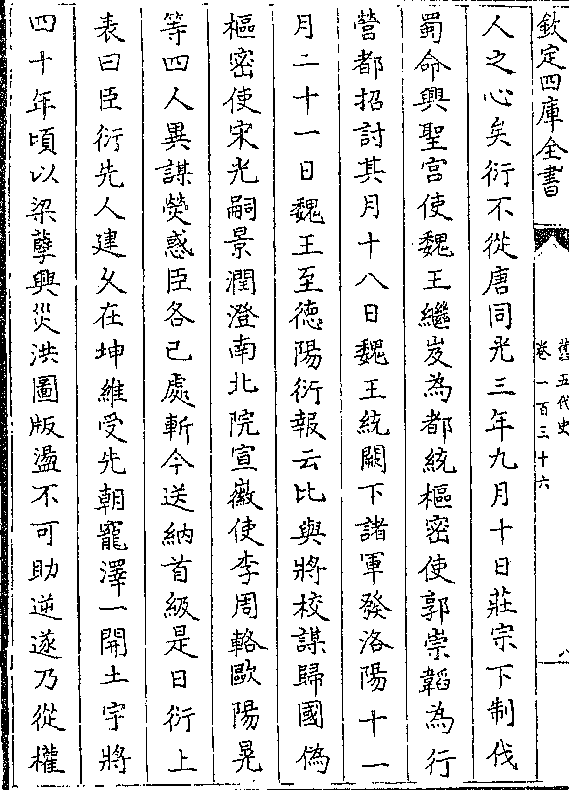 欽定四庫全書
舊五代史
卷一百三十六
八
人之心矣衍不從唐同光三年九月十日莊宗下制伐
蜀命興聖宮使魏王繼岌為都統樞密使郭崇韜為行
營都招討其月十八日魏王統闕下諸軍發洛陽十一
月二十一日魏王至德陽衍報云比與將校謀歸國偽
樞密使宋光嗣景潤澄南北院宣徽使李周輅歐陽晃
等四人異謀熒惑臣各已處斬今送納首級是日衍上
表曰臣衍先人建久在坤維受先朝寵澤一開土宇將
四十年頃以梁孽興災洪圖版盪不可助逆遂乃從權